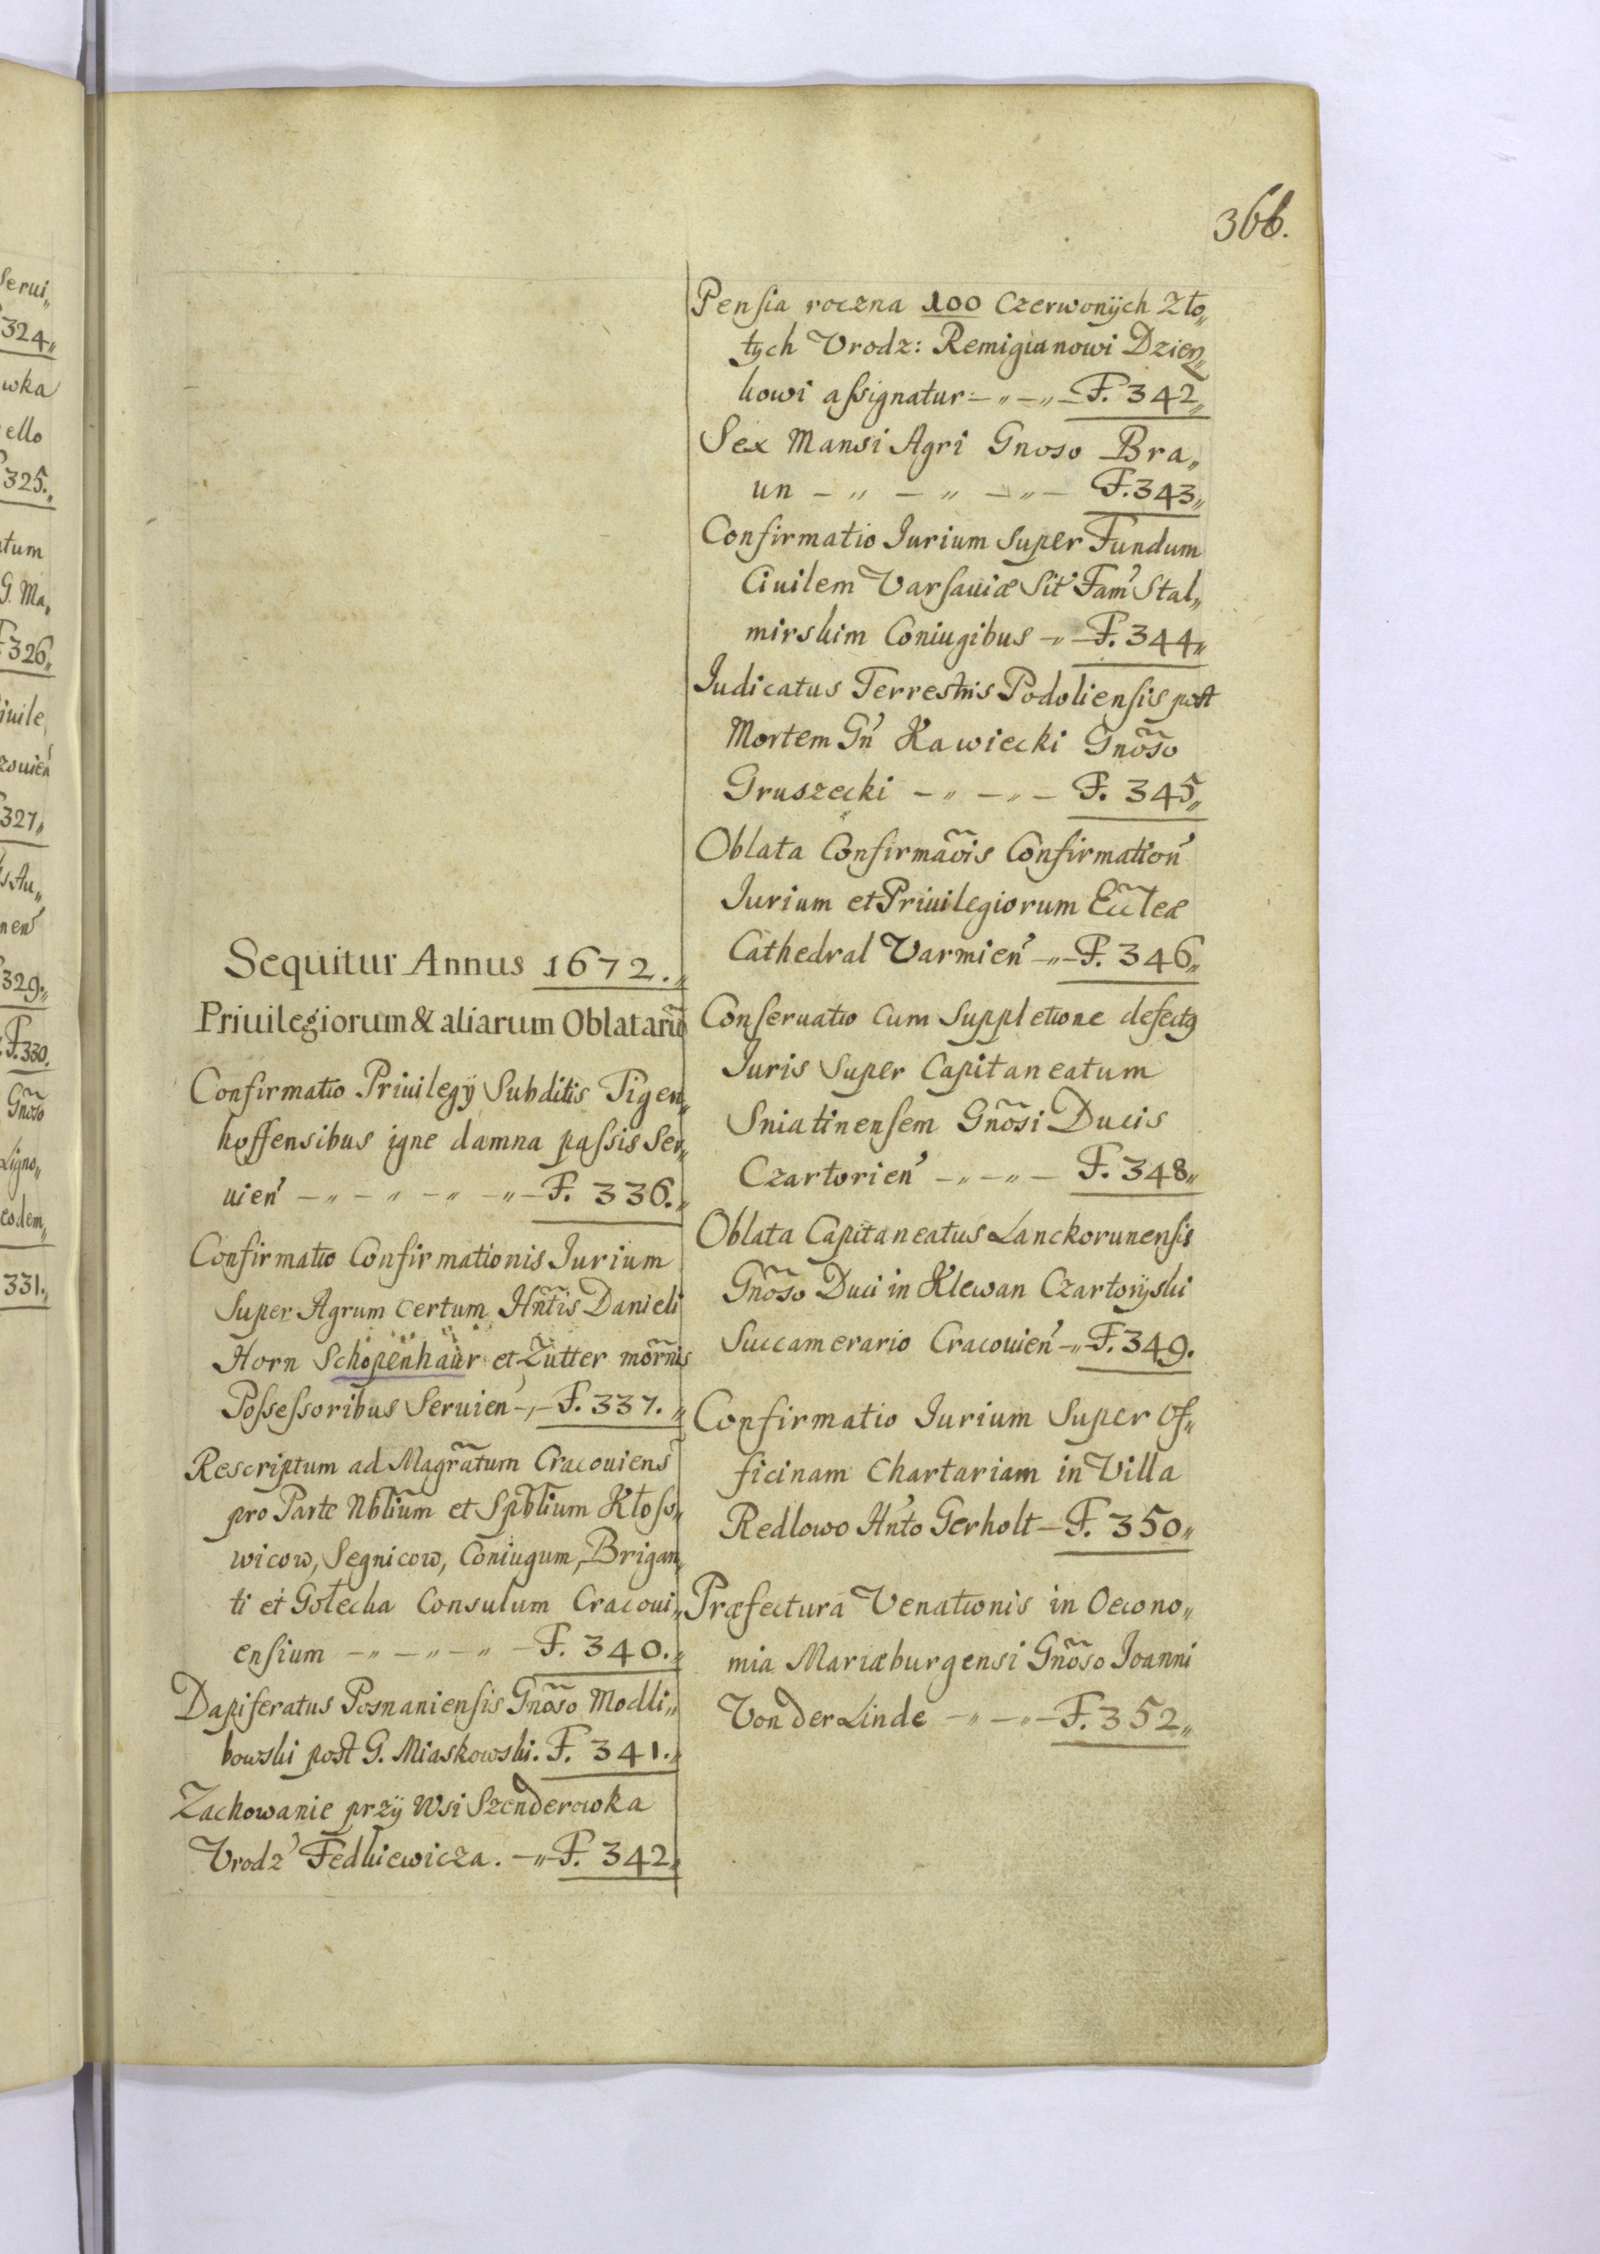 366.
Serui„
324„
wka
ello
325.„
tum
G. Ma„
F 326„
iuile
zouień
327„
329„
F. 330.
Gños̃o
Ligno„
eodem„
331.„
Sequitur Annus 1672.„
Priuilegiorum & aliarum Oblatarũ
Confirmatio Priuilegÿ Subditis Tigen„
hoffensibus igne damna passis Ser„
uien' —„—„—„—„— F. 336.„
Confirmatio Confirmationis Iurium
Super Agrum certum Hñtis Danieli
Horn Schopenhaür et Zutter mõrnis
Possessoribus Seruien' —„— F. 337.„
Rescriptum ad Magrãtum Cracouiens̃
pro Parte Nblĩum et Spblĩum Kłoso„
wicow, Segnicow, Coniugum, Brigan„
ti et Gołecka Consulum Cracoui„
ensium —„—„—„— F. 340.„
Dapiferatus Posnaniensis Gnõso Modli„
bowski post G. Miaskowski. F. 341.„
Zachowanie przÿ Wsi Szenderowka
Vrodz' Fedkiewicza. —„— F. 342„
Pensia roczna 100 Czerwonÿch Zło„
tych Vrodz: Remigianowi Dzien„
kowi assignatur —„—„— F. 342„
Sex Mansi Agri Gnoso Bra„
un —„—„—„— F. 343„
Confirmatio Iurium Super Fundum
Ciuilem Varsauiæ Sit' Fam' Stal„
mirskim Coniugibus —„— F. 344„
Iudicatus Terrestris Podoliensis post
Mortem Gn' Kawiecki Gnõso
Gruszecki —„—„— F. 345„
Oblata Confirmãois Confirmation'
Iurium et Priuilegiorum Ecc̃leæ
Cathedral Varmien' —„— F. 346„
Conseruatio cum Suppletione defectq
Iuris Super Capitaneatum
Sniatinensem Gnõsi Ducis
Czartorien' —„—„— F. 348„
Oblata Capitaneatus Lanckorunensis
Gnõso Duci in Klewan Czartorÿski
Succamerario Cracouien' —„— F. 349.
Confirmatio Iurium Super Of„
ficinam Chartariam in Villa
Redlowo Hn'to Gerholt — F. 350„
Præfectura Venationis in Oecono„
mia Mariæburgensi Gnõso Ioanni
Von der Linde —„—„— F. 352„